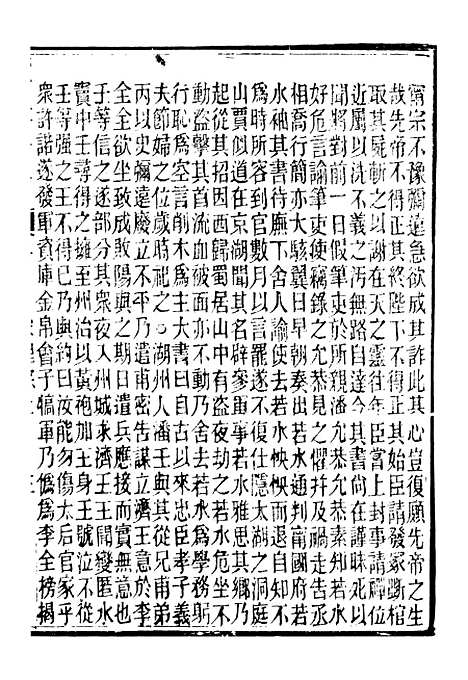 甯宗不豫彌遠急欲成其詐此其心豈復顧先帝之生
哉先帝不得正其終陛下不得正其始臣請發冢斲棺
取其屍斬之以謝在天之靈往年臣嘗上封事請禪位
近屬以洗不義之污無路自達今其書尚在謹昧死以
聞將對前一日假筆吏於所親潘允恭允恭素知若水
好危言諭筆吏使竊錄之允恭見之懼并及禍走告丞
相喬行簡亦大駭翼日早朝奏出若水通判南國府若
水袖其書待廡下舍人諭使去若水怏怏而退自知不
為時所容到官數月以言罷遂不復仕隱太湖之洞庭
山賈似道在京湖聞其名辟參軍事若水雅思其鄉乃
起從其招因西歸蜀居山中有盜夜劫之若水危坐不
動盜擊其首流血被面亦不動乃舍去若水為學務躬
行恥為空言削木為主大書曰自古以來忠臣孝子義
夫節婦之位歲時祀之○湖州人潘壬與其從兄甫弟
丙以史彌遠廢立不平乃遣甫密告謀立濟王意於李
全全欲坐致成敗陽與之期日遣兵應接而實無意壬
等信之遂部分其衆夜入州城求濟王王聞變匿水
竇中壬尋得之擁至州治以黃袍加王身王號泣不從
壬等強之王不得已乃與約曰汝能勿傷太后官家乎
衆許諾遂發軍資庫金帛會子犒軍乃偽為李全榜揭